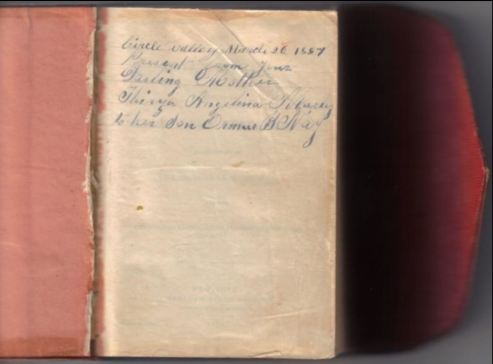 Circle Valley March 26 1887
Present from your
Darling Mother
Angelina
to her Son Ormus B Nay